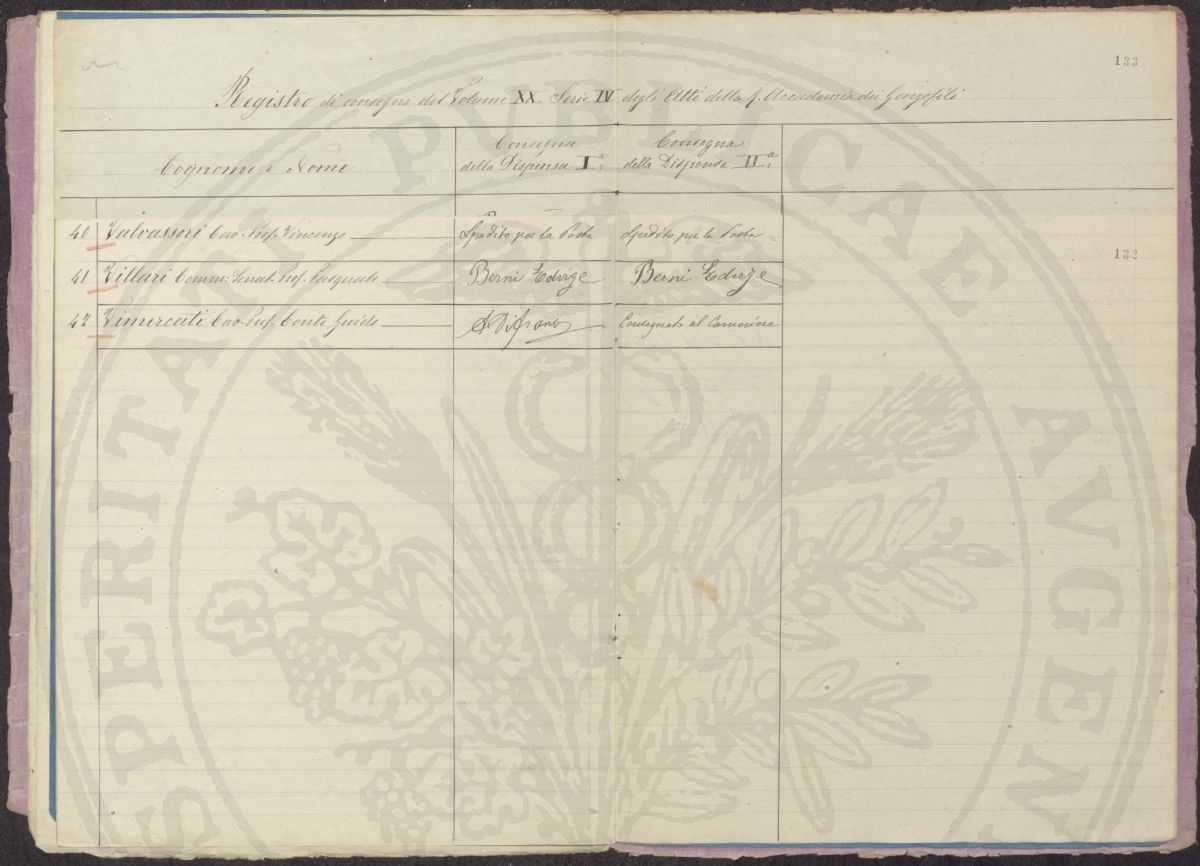 133
Registro di consegna del Volume XX Serie IV degli Atti della R. Accademia dei Georgofili
Cognome e Nome
Consegna
della Dispensa Iª
Consegna
della Dispensa IIª
40 Valvassori Cav. Prof. Vincenzo
Spedito per la Posta
Spedito per la Posta
132
41 Villari Comm. Senat. Prof. Pasquale
Berni Edvige
Berni Edvige
42 Vimercati Cav. Prof. Conte Guido
Consegnato al
PROSPERITATI PVBLICAE AVGEN